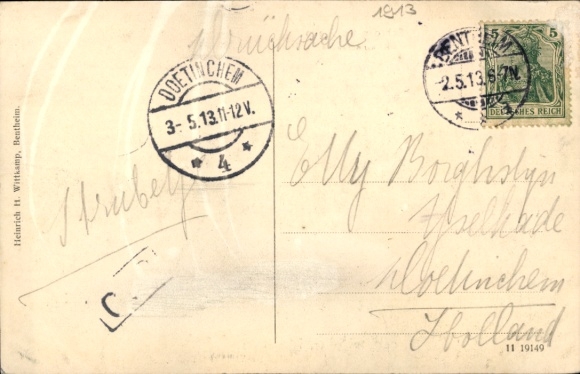 1913
Drucksache
BENTHEIM
2.5.13.6-7N.
5 5
DEUTSCHES REICH
DOETINCHEM
3-5.13.11-12V.
4
Elly
Doetinchem
Holland
Heinrich H. Wittkamp, Bentheim.
C.
11 19149